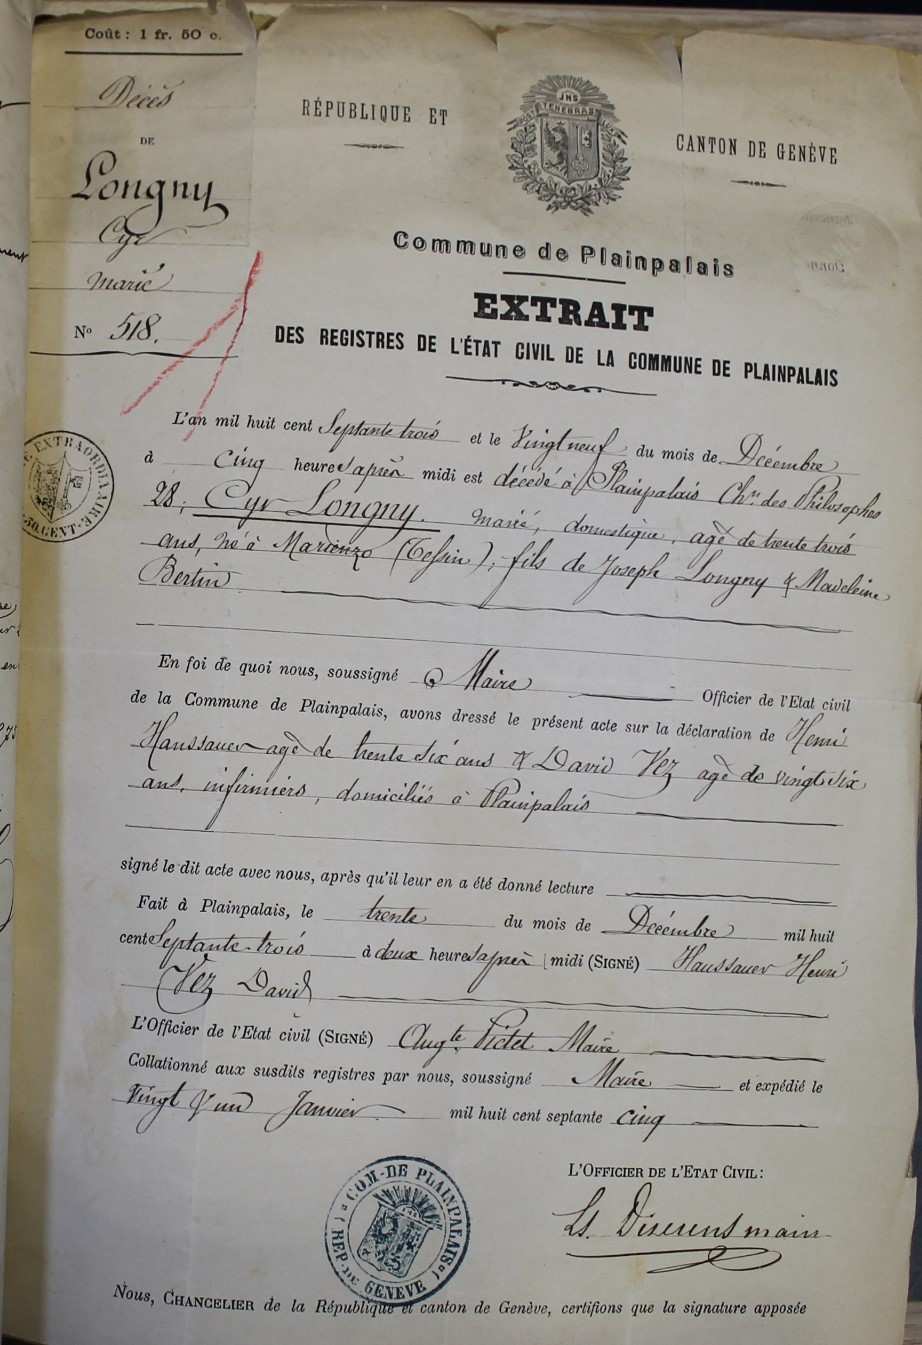 Coût : 1 fr. 50 c.
Décès
DE
Longny
Cyr
marié
N° 518.
RÉPUBLIQUE ET
CANTON DE GENÈVE
JHS
POST TENEBRAS LUX
Commune de Plainpalais
EXTRAIT
DES REGISTRES DE L'ÉTAT CIVIL DE LA COMMUNE DE PLAINPALAIS
L'an mil huit cent Septante trois et le Vingt neuf du mois de Décembre
à cinq heures après midi est décédé à Plainpalais Chn. des Philosophes
28, Cyr Longny. marié, domestique, agé de trente trois
ans, né à Marienzo (Tessin), fils de Joseph Longny & Madeleine
Bertin
EXTRAORDINAIRE
50. CENT.
En foi de quoi nous, soussigné Maire Officier de l'Etat civil
de la Commune de Plainpalais, avons dressé le présent acte sur la déclaration de Henri
Haussauer agé de trente six ans & David Vez agé de vingt six
ans, infirmiers, domiciliés à Plainpalais
signé le dit acte avec nous, après qu'il leur en a été donné lecture
Fait à Plainpalais, le trente du mois de Décembre mil huit
cent Septante-trois à deux heures après midi (SIGNÉ) Haussauer Henri
Vez David
L'Officier de l'Etat civil (SIGNÉ) Augte. Pictet Maire
Collationné aux susdits registres par nous, soussigné Maire et expédié le
Vingt & un Janvier mil huit cent septante cinq
L'OFFICIER DE L'ETAT CIVIL :
COM. DE PLAINPALAIS
(REP. DE GENÈVE)
Ls. Diserens
Nous, CHANCELIER de la République et canton de Genève, certifions que la signature apposée